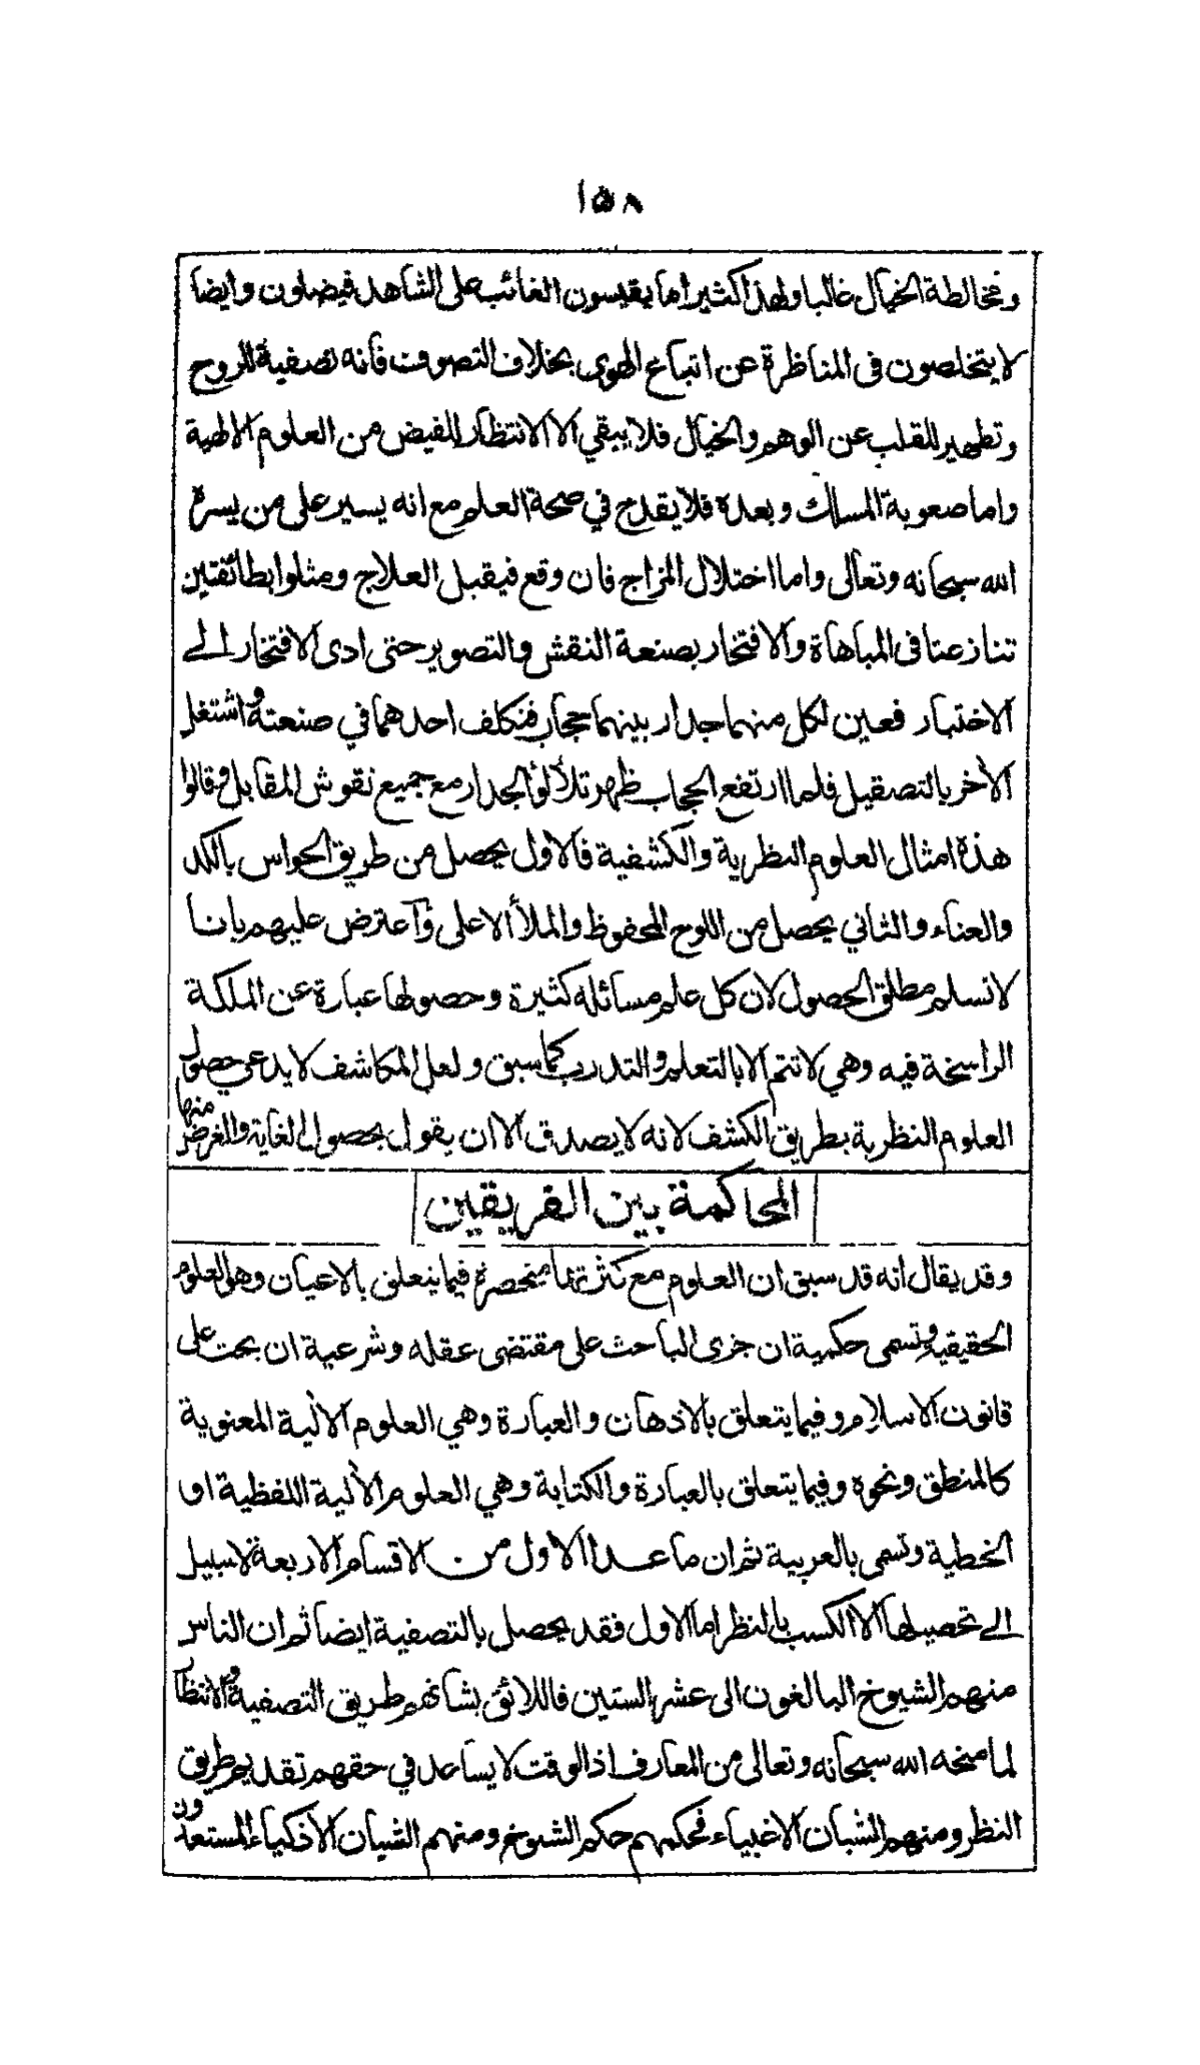 ١٥٨
ومخالطة الخيال غالبا ولهذا كثيرا ما يقيسون الغائب على الشاهد فيضلون وايضا
لا يتخلصون فى المناظرة عن اتباع الهوى بخلاف التصوف فانه تصفية للروح
وتطهير للقلب عن الوهم والخيال فلا يبقي الا الانتظار للفيض من العلوم الالهية
واما صعوبة المسلك وبعده فلا يقدح في صحة العلم مع انه يسير على من يسره
الله سبحانه وتعالى واما اختلال المزاج فان وقع فيقبل العلاج ومثلوا بطائفتين
تنازعتا فى المباهاة والافتخار بصنعة النقش والتصوير حتى ادى الافتخار الى
الاختبار فعين لكل منهما جدار بينهما حجاب فتكلف احدهما في صنعته واشتغل
الآخر بالتصقيل فلما ارتفع الحجاب ظهر تلألؤ الجدار مع جميع نقوش المقابل وقالوا
هذه امثال العلوم النظرية والكشفية فالاول يحصل من طريق الحواس بالكد
والعناء والثاني يحصل من اللوح المحفوظ والملأ الاعلى وآعترض عليهم بانا
لا نسلم مطلق الحصول لان كل علم مسائله كثيرة وحصولها عبارة عن الملكة
الراسخة فيه وهي لا تتم الا بالتعلم والتدرب كما سبق ولعل المكاشف لا يدعى حصول
العلوم النظرية بطريق الكشف لانه لا يصدق الا ان يقول بحصول الغاية والغرض منها
المحاكمة بين الفريقين
وقد يقال انه قد سبق ان العلوم مع كثرتها منحصرة فيما يتعلق بالاعيان وهو العلوم
الحقيقية وتسمى حكمية ان جرى الباحث على مقتضى عقله وشرعية ان بحث على
قانون الاسلام وفيما يتعلق بالاذهان والعبارة وهي العلوم الآلية المعنوية
كالمنطق ونحوه وفيما يتعلق بالعبارة والكتابة وهي العلوم الآلية اللفظية او
الخطية وتسمى بالعربية ثم ان ما عدا الاول من الاقسام الاربعة لا سبيل
الى تحصيلها الا الكسب بالنظر اما الاول فقد يحصل بالتصفية ايضا ثم ان الناس
منهم الشيوخ البالغون الى عشر الستين فاللائق بشانهم طريق التصفية والانتظار
لما منحه الله سبحانه وتعالى من المعارف اذ الوقت لا يساعد في حقهم تقديم طريق
النظر ومنهم الشبان الاغبياء فحكمهم حكم الشيوخ ومنهم الشبان الاذكياء المستعدون